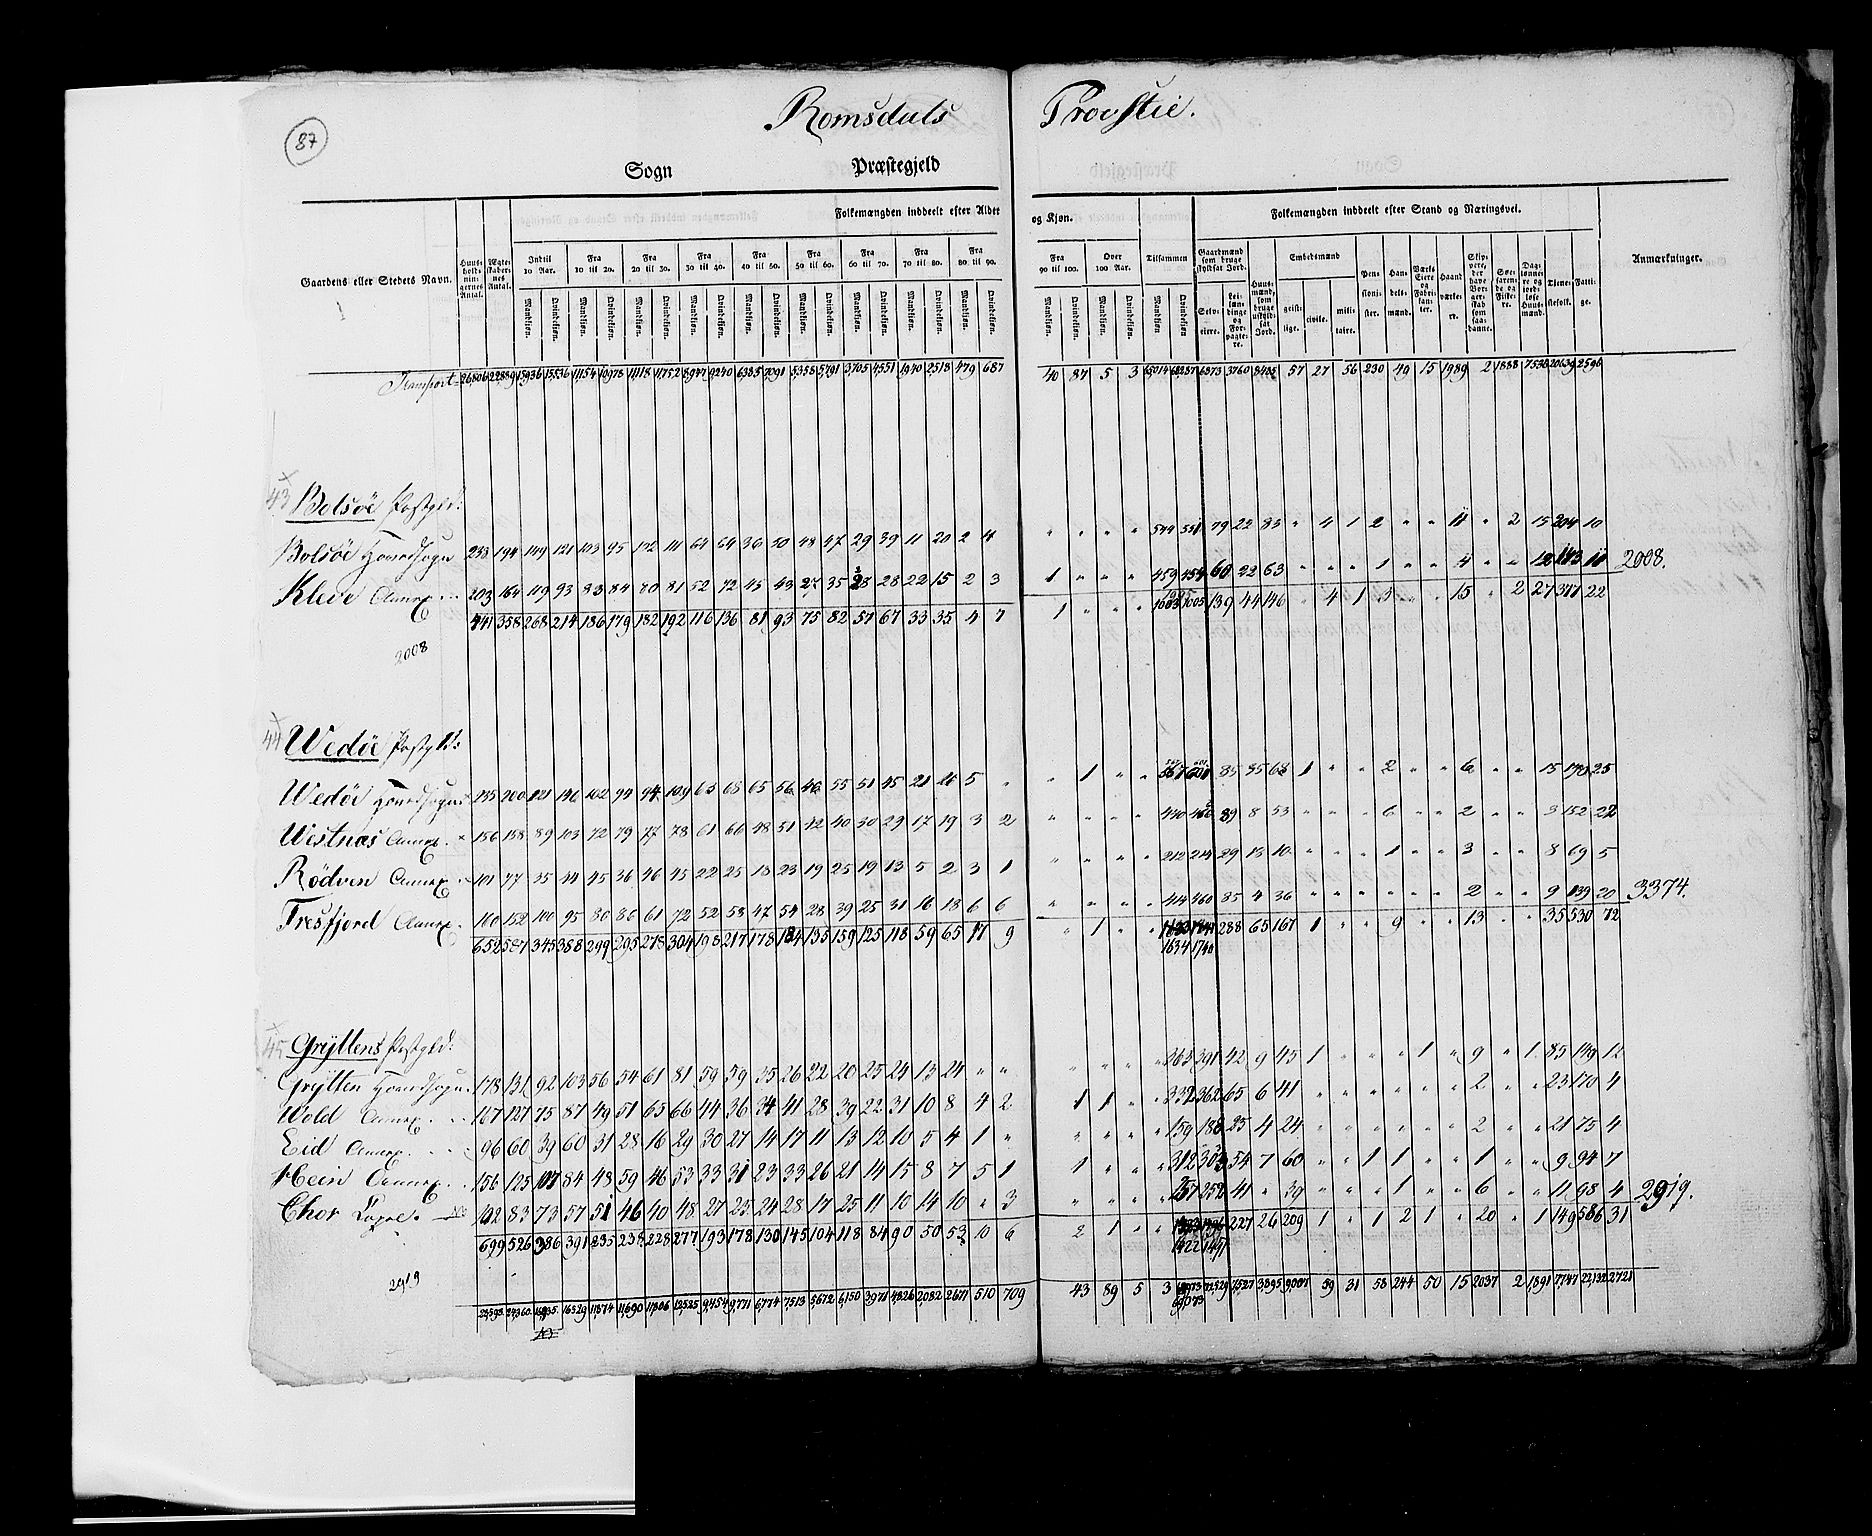 87
Romsdals Provstie.
Sogn Præstegjeld
Folkemængden inddeelt efter Alder og Kjøn. Folkemængden inddeelt efter Stand og Næringsvei.
Gaardens eller Stedets Navn. Huus-hold-nin-gernes Antal. Ægte-skaber-nes Antal. Indtil 10 Aar. Fra 10 til 20. Fra 20 til 30. Fra 30 til 40. Fra 40 til 50. Fra 50 til 60. Fra 60 til 70. Fra 70 til 80. Fra 80 til 90. Fra 90 til 100. Over 100 Aar. Tilsammen Gaardmænd som bruge skyldsat Jord. Huus-mænd, som bruge uskyld-sat Jord. Embedsmænd Pen-sioni-ster. Han-dels-mænd. Værks Eiere og Fabri-kan-ter. Haand-værke-re. Skip-pere, der have Bor-ger-skab som saa-danne. Søe-faren-de og Fiske-re. Dag-lønne-re og jord-løse Huus-mænd. Tjene-stefolk. Fatti-ge. Anmærkninger.
Mandkjøn. Qvindekjøn. Mandkjøn. Qvindekjøn. Mandkjøn. Qvindekjøn. Mandkjøn. Qvindekjøn. Mandkjøn. Qvindekjøn. Mandkjøn. Qvindekjøn. Mandkjøn. Qvindekjøn. Mandkjøn. Qvindekjøn. Mandkjøn. Qvindekjøn. Mandkjøn. Qvindekjøn. Mandkjøn. Qvindekjøn. Mandkjøn Qvindekjøn Selv-eiere. Lei-læn-dinge og For-pagte-re. geist-lige. civile. mili-taire.
Transport 40 87 5 3 6373 3760 57 27 56 230 49 15 1989 2 1888 7538 20639 2596
43 Bolsøe Præstgjld:
Bolsøe Hovedsogn 233 194 149 121 103 95 102 111 64 64 36 50 48 47 29 39 11 20 2 4 " " " " 544 551 79 22 83 " 4 1 2 " " 11 " 2 15 204 10
Kleve Annex 203 164 119 93 83 84 80 81 52 72 45 43 27 35 28 28 22 15 2 3 1 " " " 459 454 60 22 63 " " " 1 " " 4 " " 12 173 11 2008.
441 358 268 214 186 179 182 192 116 136 81 93 75 82 57 67 33 35 4 7 1 " " " 1003 1005 139 44 146 " 4 1 3 " " 15 " 2 27 377 22
2008
44 Wedøe Præstgjld:
Wedøe Hovedsogn 235 200 121 146 102 94 94 109 63 68 65 56 46 55 51 45 21 26 5 " " 1 " " 567 601 85 35 68 1 " " 2 " " 6 " " 15 170 25
Westnæs Annex 156 158 89 103 72 79 77 78 61 66 48 51 42 40 30 29 17 19 3 2 " " " " 440 466 89 8 53 " " " 6 " " 2 " " 3 152 22
Rødven Annex 101 77 35 44 45 36 46 45 22 25 18 23 19 25 19 13 5 2 3 1 " " " " 212 214 29 18 10 " " " 1 " " 3 " " 8 69 5
Tresfjord Annex 160 152 100 95 80 86 61 72 52 58 47 54 28 39 25 31 16 18 6 6 " " " " 414 460 85 4 36 " " " " " " 2 " " 9 139 20 3374.
652 587 345 388 299 295 278 304 198 217 178 184 135 159 125 118 59 65 17 9 " 1 " " 288 65 167 1 " " 9 " " 13 " " 35 530 72
1634 1740
45 Grÿttens Præstgjld:
Grÿtten Hovedsogn 178 131 92 103 56 54 61 81 59 59 35 26 22 20 25 24 13 24 " " " " " " 363 391 42 9 45 1 " " " 1 " 9 " 1 85 149 12
Wold Annex 167 127 75 87 49 51 65 66 44 36 34 41 28 39 22 31 10 8 4 2 1 1 " " 332 362 65 6 41 " " " " " " 2 " " 23 170 4
Eid Annex 96 60 39 60 31 28 16 29 30 27 14 17 11 13 12 10 5 4 1 " " " " " 159 188 25 4 24 " " " " " " 2 " " 21 75 4
Hein Annex 156 125 107 84 48 59 46 53 33 31 23 33 26 21 14 15 8 7 5 1 1 " " " 312 303 54 7 60 " " 1 1 " " 1 " " 9 94 7
Thor Capel 102 83 73 57 51 46 40 48 27 25 24 28 17 25 11 10 14 10 " 3 " " " " 257 252 41 " 39 " " " 1 " " 6 " " 11 98 4 2919.
699 526 386 391 235 238 228 277 193 178 130 145 104 118 84 90 50 53 10 6 2 1 " " 227 26 209 1 " 1 2 1 " 20 " 1 149 586 31
1422 1497
2919
43 89 5 3 59 31 58 244 50 15 2037 2 1891 7747 22132 2721